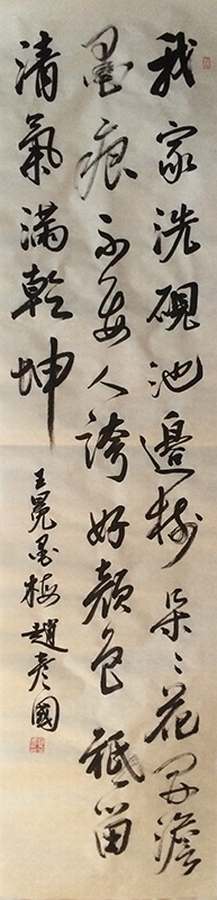 我家洗硯池邊樹朵々花開澹
墨痕不要人誇好顏色祗留
清氣滿乾坤
王冕墨梅 趙彥國